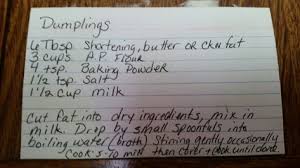 Dumplings
6 Tbsp. Shortening, butter or ckn fat
3 cups A.P. Flour
4 tsp. Baking Powder
1 1/2 tsp. Salt
1 1/2 cup milk
Cut fat into dry ingredients, mix in
milk. Drop by small spoonfuls into
boiling water (broth) Stirring gently occasionally
Cook 5-10 min then cover + cook until done.